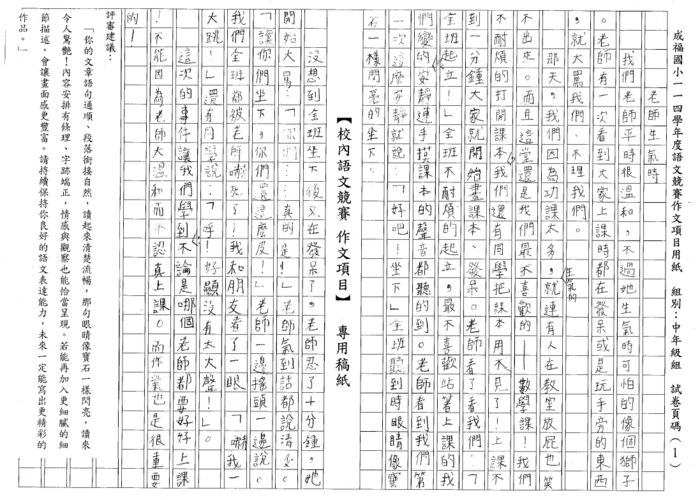 成福國小一一四學年度語文競賽作文項目用紙　組別：中年級組　試卷頁碼（1）
老師生氣時
我們老師平時很溫和，不過她生氣時可怕的像個獅子
。老師有一次看到大家上課時都在發呆或是玩手旁的東西
，就大罵我們、不理我們。
那天，我們因為功課太多，就連有人在教室放屁也笑
不出來。而且這堂還是我們最不喜歡的——數學課！我們
不耐煩的打開課本，還有同學把課本用不見了！上課不
到一分鐘大家就開始畫課本、發呆。老師看了看我們：「
全班起立！」全班不耐煩的起立，最不喜歡站著上課的我
們變的安靜連手摸課本的聲音都聽的到。老師看到我們第
一次這麼安靜就說：「好吧！坐下」全班聽到時眼睛像寶
石一樣閃亮的坐下。
生氣的
【校內語文競賽 作文項目】　專用稿紙
沒想到全班坐下後又在發呆了，老師忍了十分鐘，她
開始大罵：「你們……真的是……」老師氣到話都說不清楚。
「讓你們坐下，你們還這麼皮！」老師一邊搖頭一邊說。
我們全班都被老師嚇死了！我和朋友看了一眼：「嚇我一
大跳！」還有同學說：「呼！好險沒有太大聲！」。
這次的事件讓我們學到不論是哪個老師都要好好上課
！不能因為老師太溫和而不認真上課。而作業也是很重要
的！
評審建議：
「你的文章語句通順、段落銜接自然，讀起來清楚流暢，那句眼睛像寶石一樣閃亮，讀來
令人驚艷！內容安排有條理、字跡端正，情感與觀察也能恰當呈現。若能再加入更細膩的細
節描述，會讓畫面感更豐富。請持續保持你良好的語文表達能力，未來一定能寫出更精彩的
作品。」